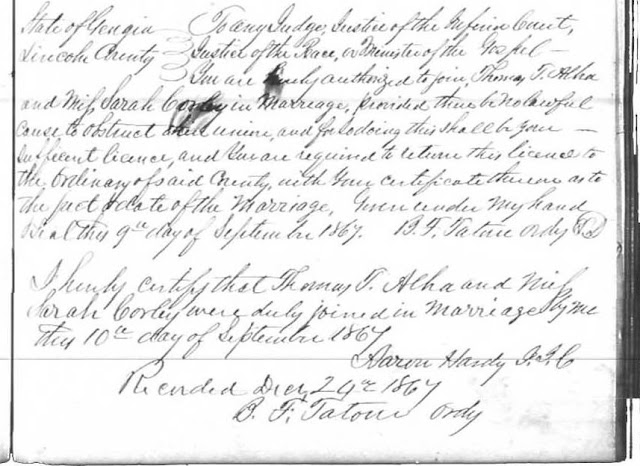 State of Georgia To any Judge, Justice of the Inferior Court,
Lincoln County Justice of the Peace, or Minister of the Gospel —
You are hereby authorized to join, Thomas T. Albea
and Miss Sarah Corley in Marriage, provided there be no lawful
cause to obstruct their union, and for so doing this shall be your —
sufficent licence, and you are required to return this licence to
the Ordinary of said County, with your certificate thereon as to
the fact & date of the Marriage, Given under my hand
& seal this 9th day of September 1867. B. F. Tatom Ordy
I hereby certify that Thomas T. Albea and Miss
Sarah Corley were duly joined in Marriage by me
this 10th day of September 1867
Aaron Hardy J. I. C
Recorded Decr 24th 1867
B. F. Tatom Ordy